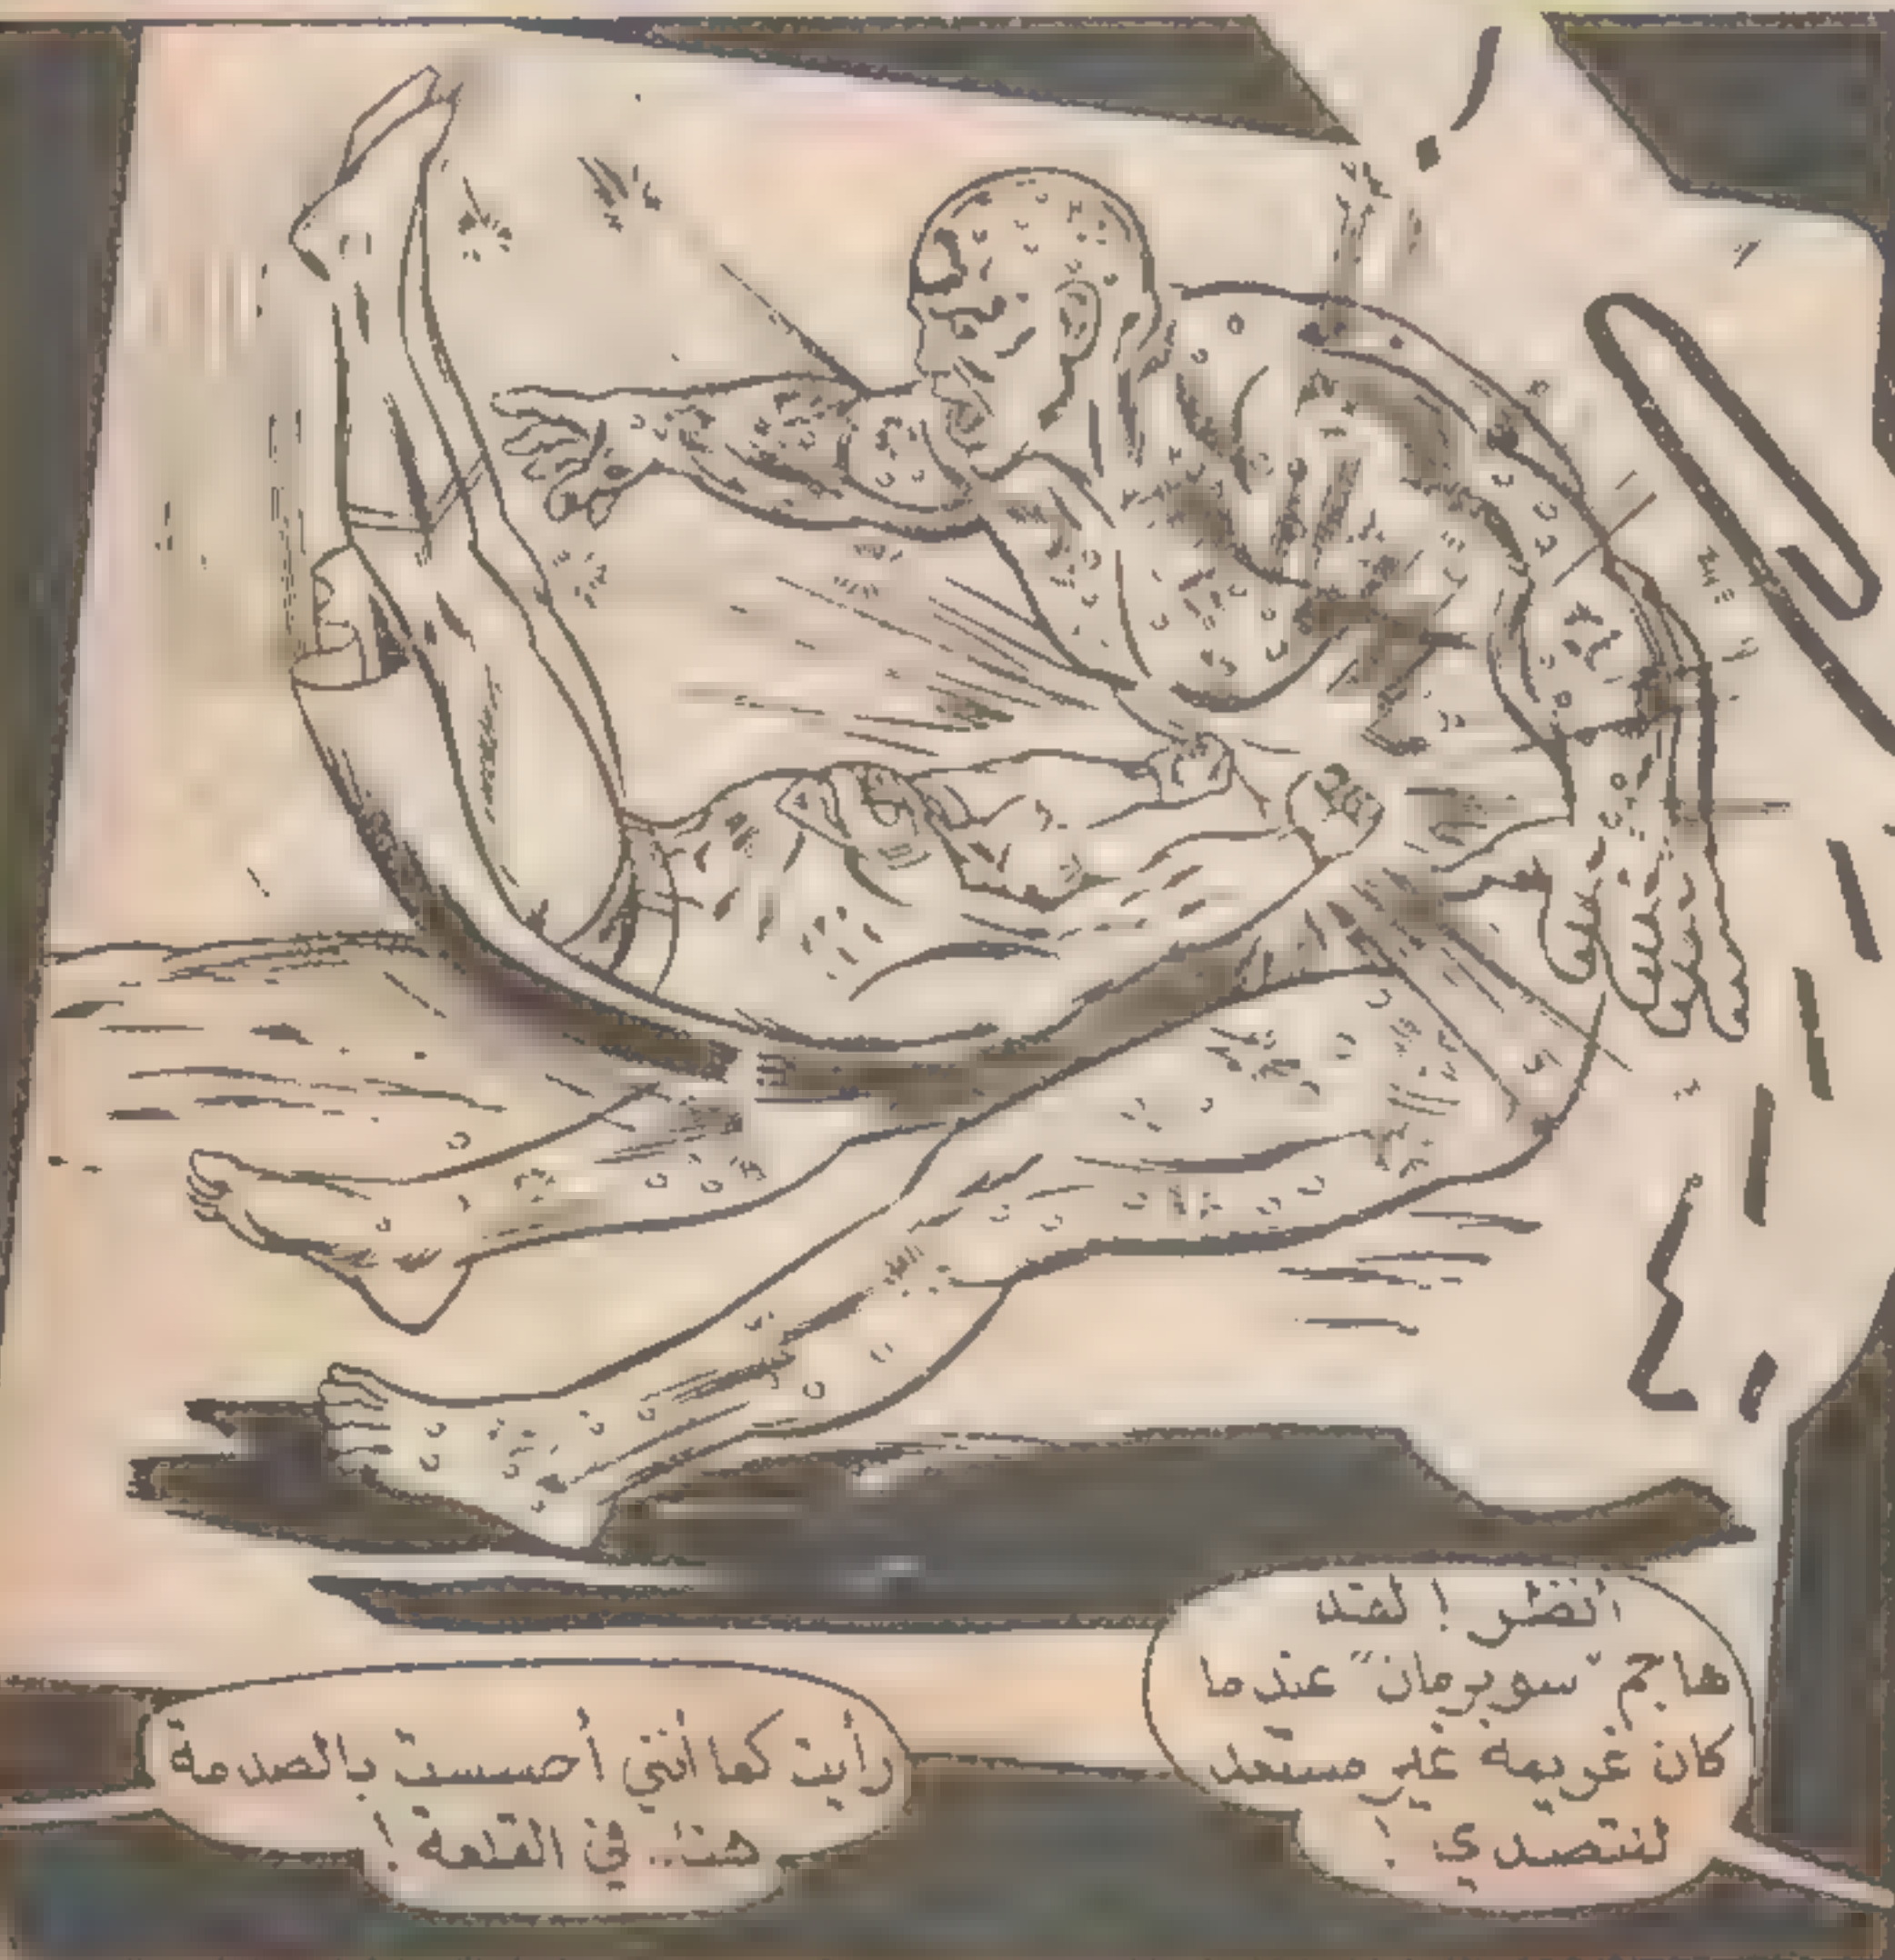 أنظر ! لقد
هاجم "سوبرمان" عندما
كان غريمه غير مستعد
للتصدي !
رأيت كما أنني أحسست بالصدمة
هنا.. في القلعة !